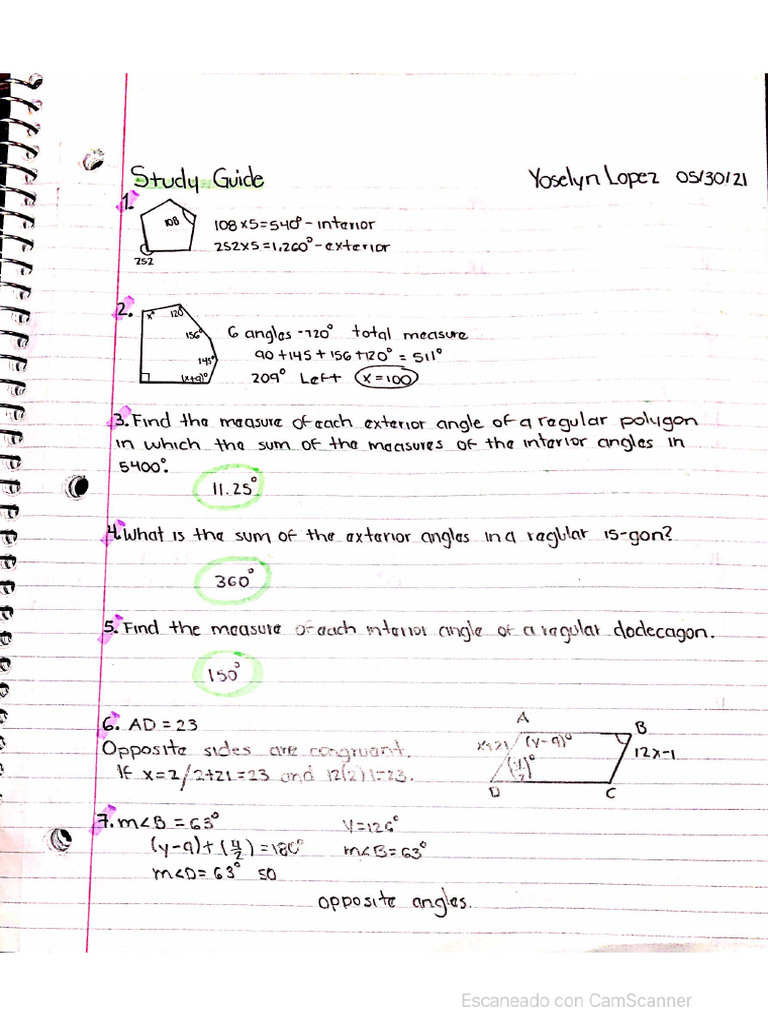 Study Guide
Yoselyn Lopez 05/30/21
1.
108
252
108x5=540°-interior
252x5=1,260°-exterior
2.
x° 120°
156°
145°
(x+9)°
6 angles -720° total measure
90+145+156+120°=511°
209° Left x=100
3. Find the measure of each exterior angle of a regular polygon
in which the sum of the measures of the interior angles in
5400°.
11.25°
4. What is the sum of the exterior angles in a regular 15-gon?
360°
5. Find the measure of each interior angle of a regular dodecagon.
150°
6. AD = 23
Opposite sides are congruent.
If x=2/2+21=23 and 12(2)-1=23.
A
B
x+21 (y-9)°
12x-1
(y/2)°
D
C
7. m∠B = 63°
(y-9)+(y/2)=180°
m∠D= 63° so
y=126°
m∠B=63°
opposite angles.
Escaneado con CamScanner